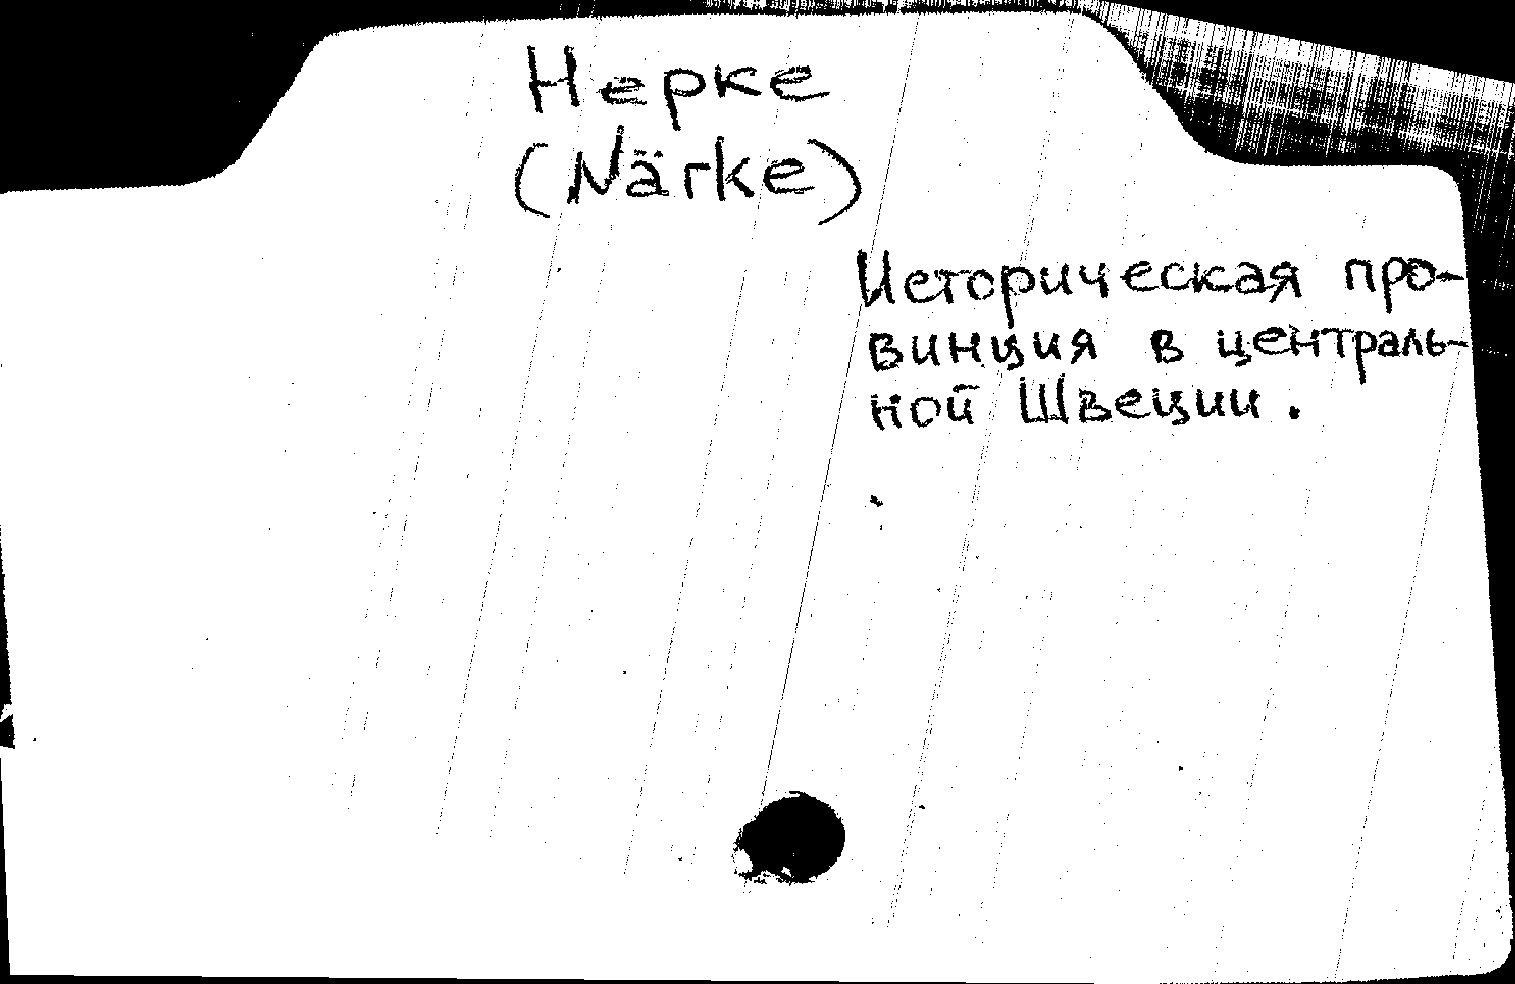 Нерке
(Närke)
Историческая про-
винция в централь-
ной Швеции.